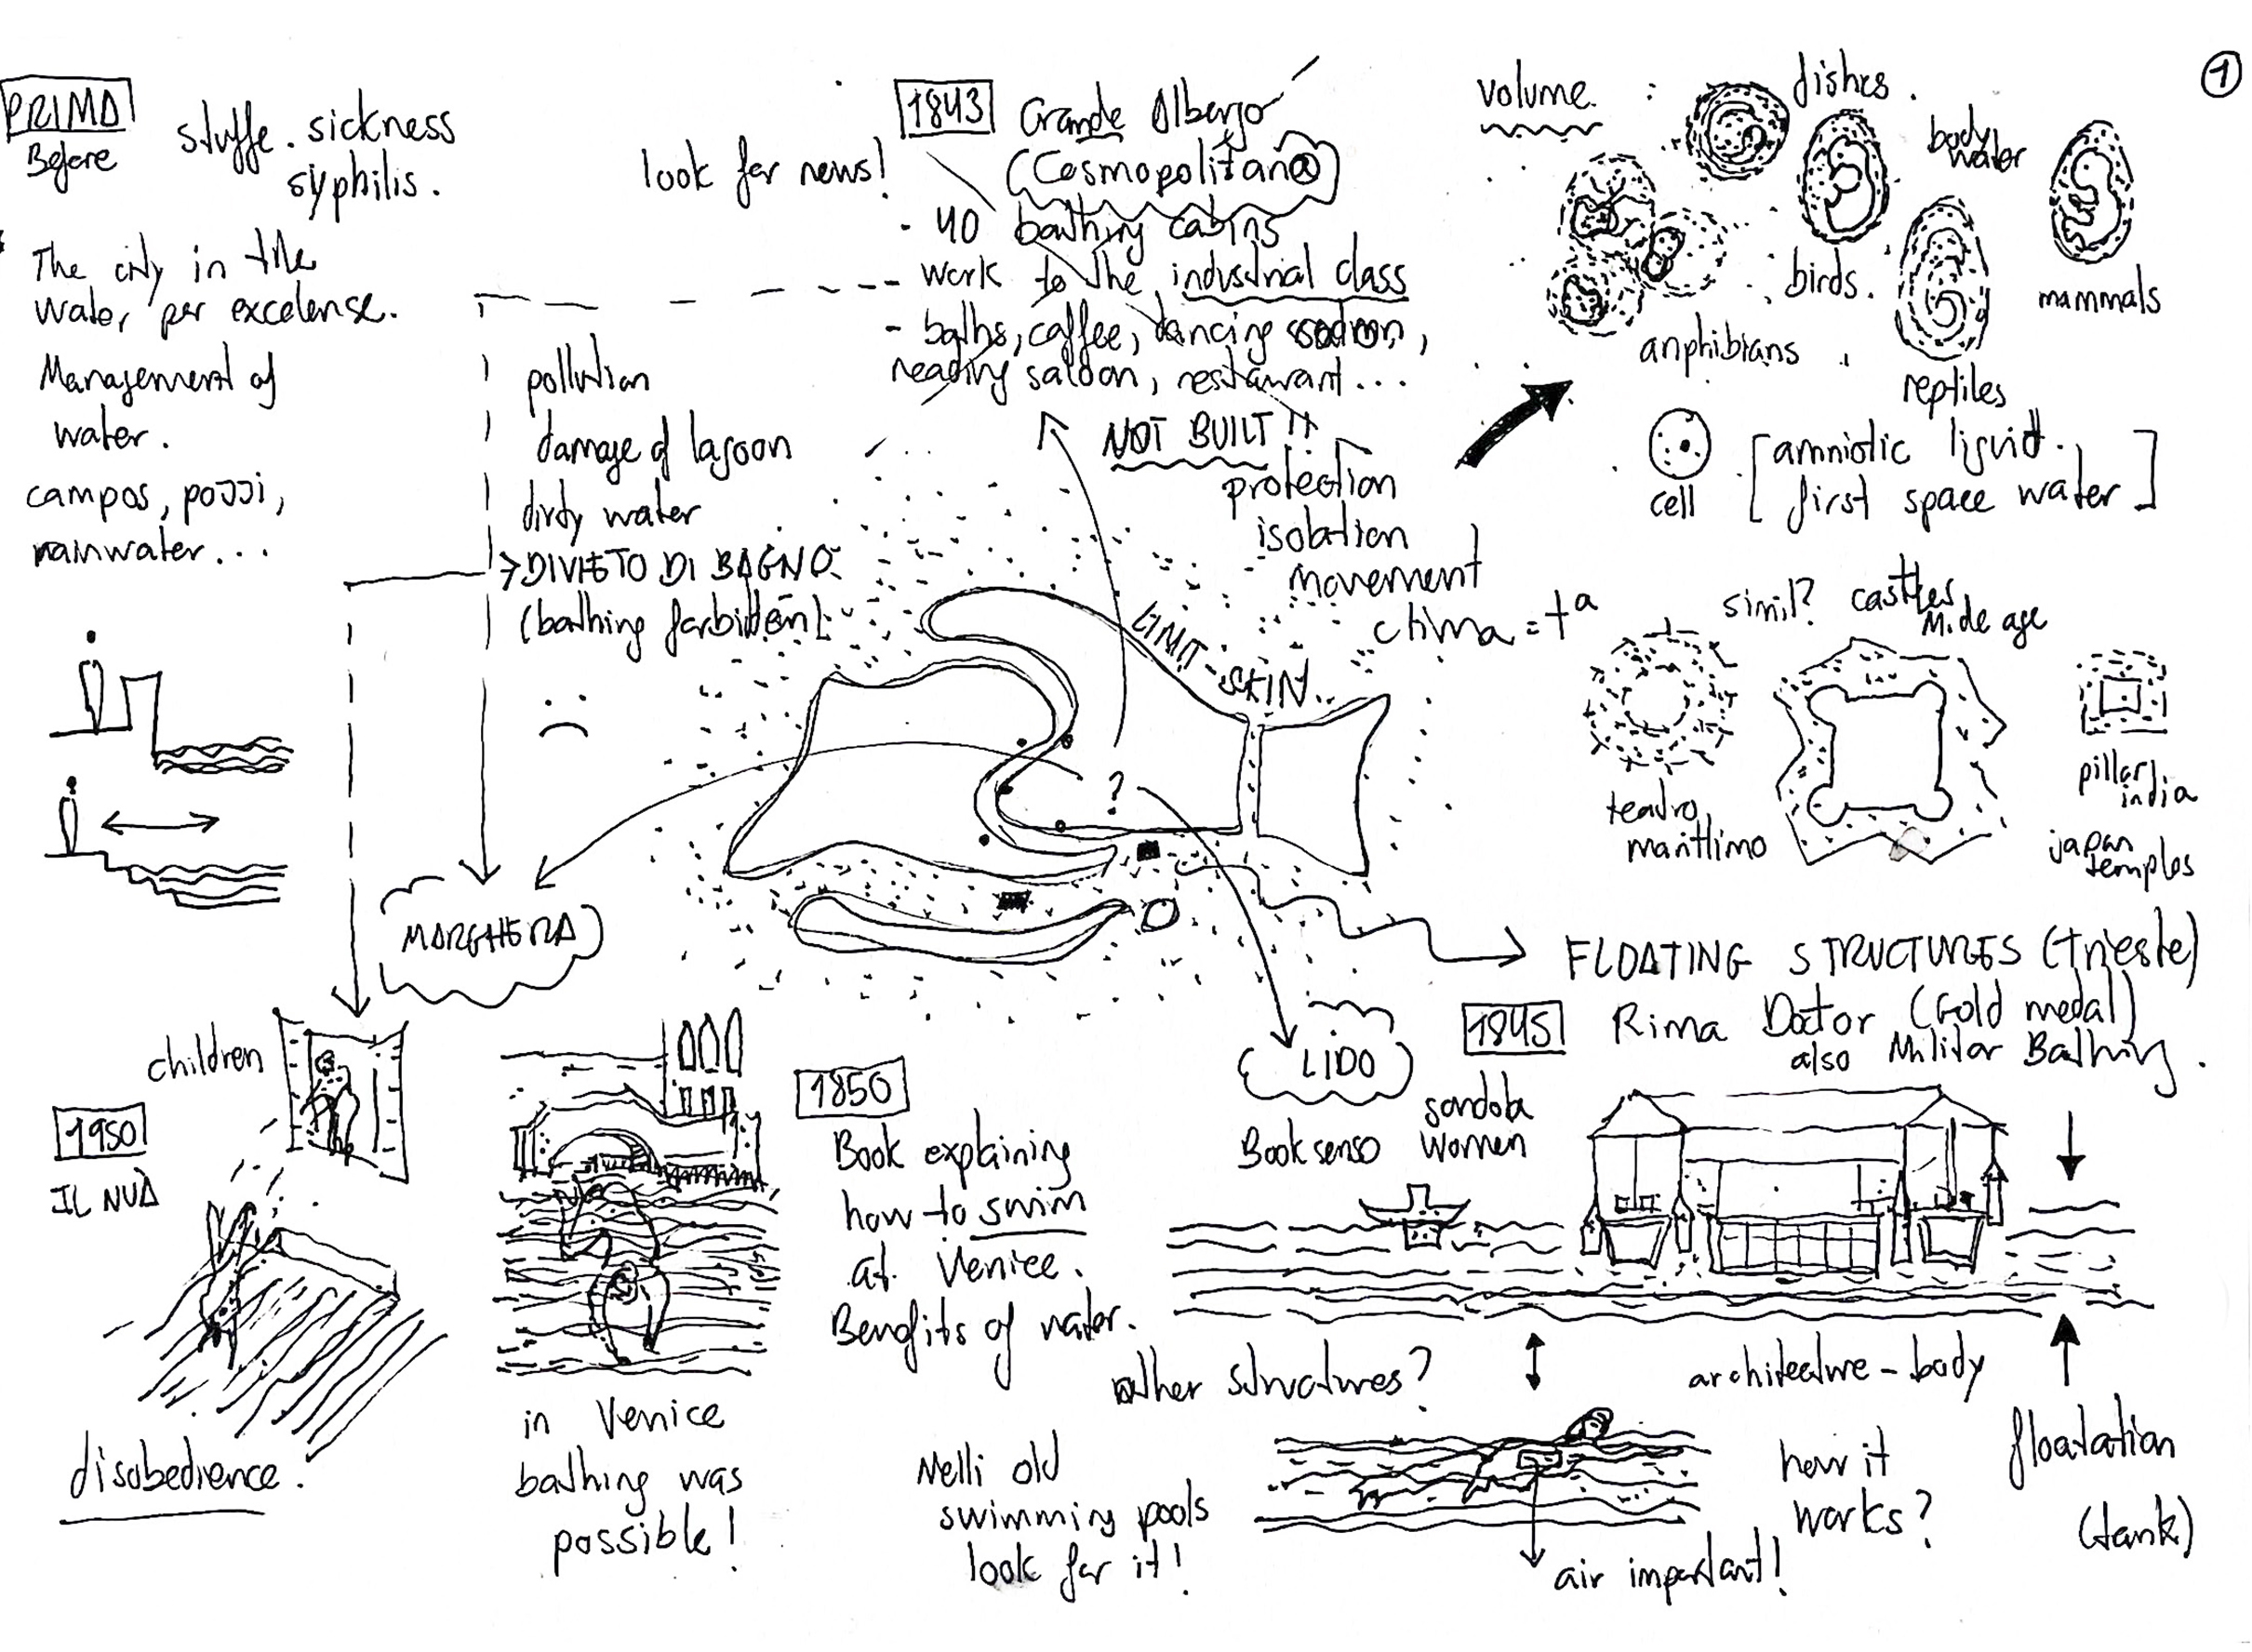 1
PRIMA
Before
stuffe. sickness
syphilis.
The city in the
water per excelense.
Management of
water.
campos, pozzi,
rainwater...
look for news!
1843 Grande Albergo
(Cosmopolitano)
- 40 bathing cabins
- work to the industrial class
- baths, caffee, dancing
reading saloon, restaurant...
NOT BUILT!!
pollution
damage of lagoon
dirty water
DIVIETO DI BAGNO
(bathing forbidden)
protection
isolation
movement
clima = tª
LIMIT-SKIN
?
volume
dishes.
body
water
birds.
mammals
anphibians
reptiles
cell
[amniotic liquid.
first space water]
simil? castles
M.de age
teatro
marittimo
pillar
india
japan
temples
MARGHERA
LIDO
FLOATING STRUCTURES (trieste)
1845 Rima Doctor (Gold medal)
also Militar Bathing.
children
1950
IL NUA
disobedience.
in Venice
bathing was
possible!
1850
Book explaining
how to swim
at Venice.
Benefits of water.
Book senso
women
other structures?
architecture - body
Melli old
swimming pools
look for it!
air important!
how it
works?
floatation
(tank)